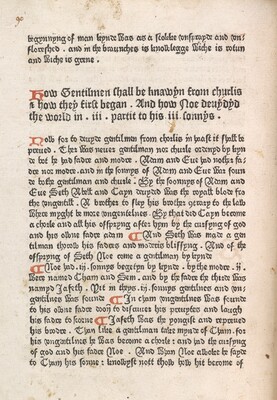 begynnyng of man kynde was as a stokke vnsprayde and vn
floreshed . and in the braunches is knowlegge wiche is rotun
and wiche is grene .
How Gentilmen shall be knawyn from churlis
& how they first began . And how Noe deuydyd
the world in . iii . partis to his iii sonnys .
Now for to deuyde gentilmen from chorlis in haast it shall be
preued . Ther was neuer gentilman nor churle ordenyd by kyn
de bot he had fadre and modre . Adam and Eue had nothir fa
dre nor modre . and in the sonnys of Adam and Eue was foun
de bothe gentilman and churle . By the soonnys of Adam and
Eue Seth Abell and Cayn deuyded was the royall blode fro
the vngentill . A brother to sley his brother contrary to the law
Where myght be more vngentelnes By that did Cayn become
a chorle and all his ofspryng after hym by the cursyng of god
and his owne fadre adam And Seth was made a gen
tilman thorowh his fadres and modris blissyng . And of the
ofspryng of Seth Noe come a gentilman by kynde
Noe had .iij. sonnys begetyn by kynde . by the modre .ij.
were named Cham and Sem . and by the fadre the thirde was
namyd Jafeth . Yit in theys .iij. sonnys gentilnes and vn
gentilnes was founde In cham vngentilnes was founde
to his owne fadre doon to discuuer his preuytes and laugh
his fadre to scorne Jafeth was the yongist and repreued
his broder . Than like a gentilman take mynde of Cham . for
his vngentilnes he was become a chorle : and had the cursyng
of god and his fadre Noe . And whan Noe awoke he sayde
to Cham his sonne : knowyst nott thow how hit become of